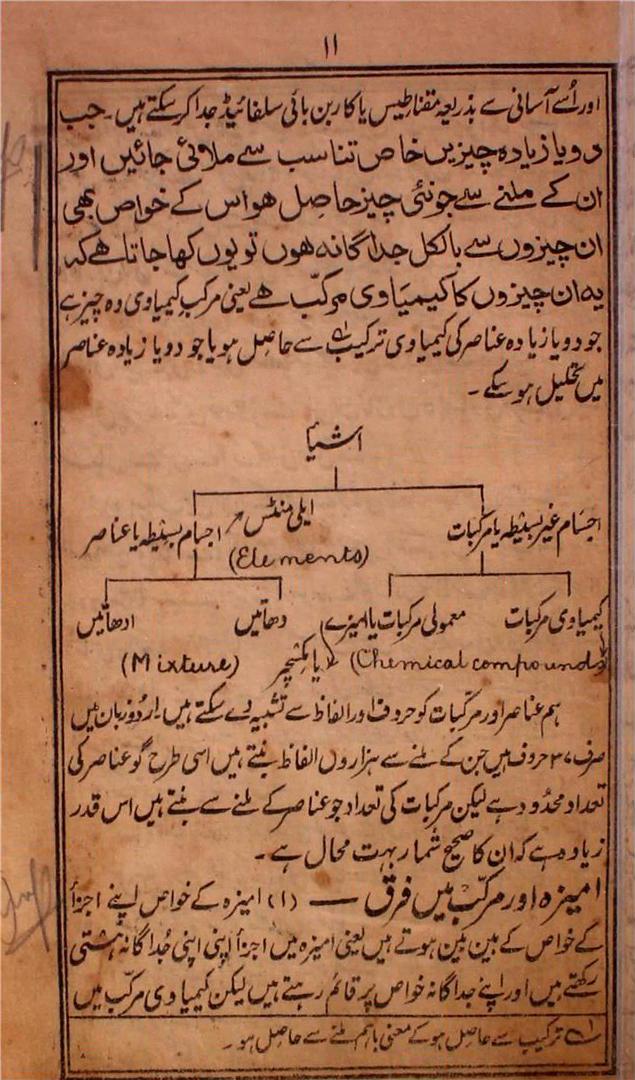 ۱۱
اور اُسے آسانی سے بذریعہ مقناطیس یا کاربن بائی سلفائیڈ جدا کر سکتے ہیں۔ جب
دو یا زیادہ چیزیں خاص تناسب سے ملائی جائیں اور
ان کے ملنے سے جو نئی چیز حاصل ھو اس کے خواص بھی
ان چیزوں سے بالکل جداگانہ ھوں تو یوں کھا جاتا ھے کہ
یہ ان چیزوں کا کیمیَاوی مرکّب ھے یعنی مرکب کیمیاوی وہ چیز ہے
جو دو یا زیادہ عناصر کی کیمیاوی ترکیب لہ سے حاصِل ہو یا جو دو یا زیادہ عناصر
میں تحلیل ہو سکے۔
اشیاء
اجسَام غیر بسیطہ یا مرکبات
ایلی منٹس
اجسام بسیطہ یا عناصر
(Elements)
کیمیاوی مرکبات
معمولی مرکبات یا امیزے
دھاتیں
ادھاتیں
(Chemical compounds)
یا مکسچر
(Mixture)
ہم عناصر اور مرکّبات کو حروف اور الفاظ سے تشبیہ دے سکتے ہیں۔ اردُو زبان میں
صرف ۳۷ حروف ہیں جن کے ملنے سے ہزاروں الفاظ بنتے ہیں اسی طرح گو عناصر کی
تعداد محدُود ہے لیکن مرکبات کی تعداد جو عناصر کے ملنے سے بنتے ہیں اس قدر
زیادہ ہے کہ ان کا صحیح شمار بہت محال ہے۔
امیزہ اور مرکّب میں فرق — (۱) امیزہ کے خواص اپنے اجزأ
کے خواص کے بین بین ہوتے ہیں یعنی امیزہ میں اجزأ اپنی اپنی جُداگانہ ہستی
رکھتے ہیں اور اپنے جداگانہ خواص پر قائم رہتے ہیں لیکن کیمیاوی مرکّب میں
لہ ترکیب سے حاصل ہو کے معنی باہم ملنے سے حاصل ہو۔